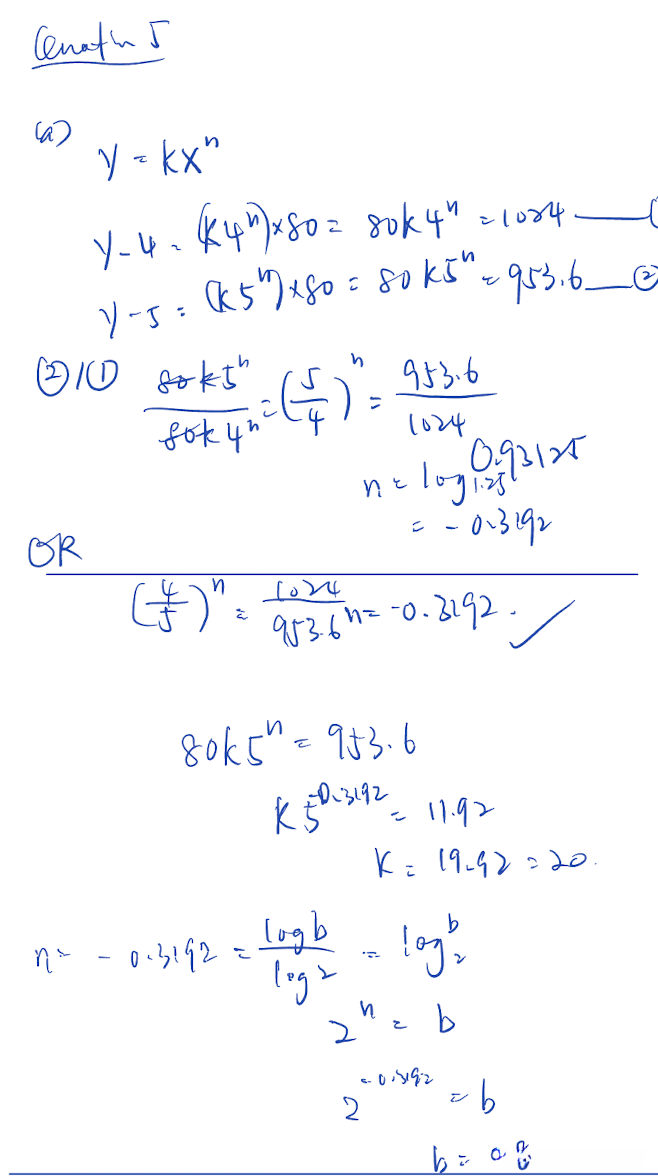 5
(a)
y = kxⁿ
y-4 = (k4ⁿ)×80 = 80k4ⁿ = 1024 —— (
y-5 = (k5ⁿ)×80 = 80k5ⁿ = 953.6 — ②
②/① 80k5ⁿ / 80k4ⁿ = (5/4)ⁿ = 953.6 / 1024
n = log₁.₂₅ 0.93125
= -0.3192
OR
(4/5)ⁿ = 1024 / 953.6 n = -0.3192. ✓
80k5ⁿ = 953.6
k5^-0.3192 = 11.92
k = 19.92 = 20.
n = -0.3192 = log b / log 2 = log₂ b
2ⁿ = b
2^-0.3192 = b
b = 0.8